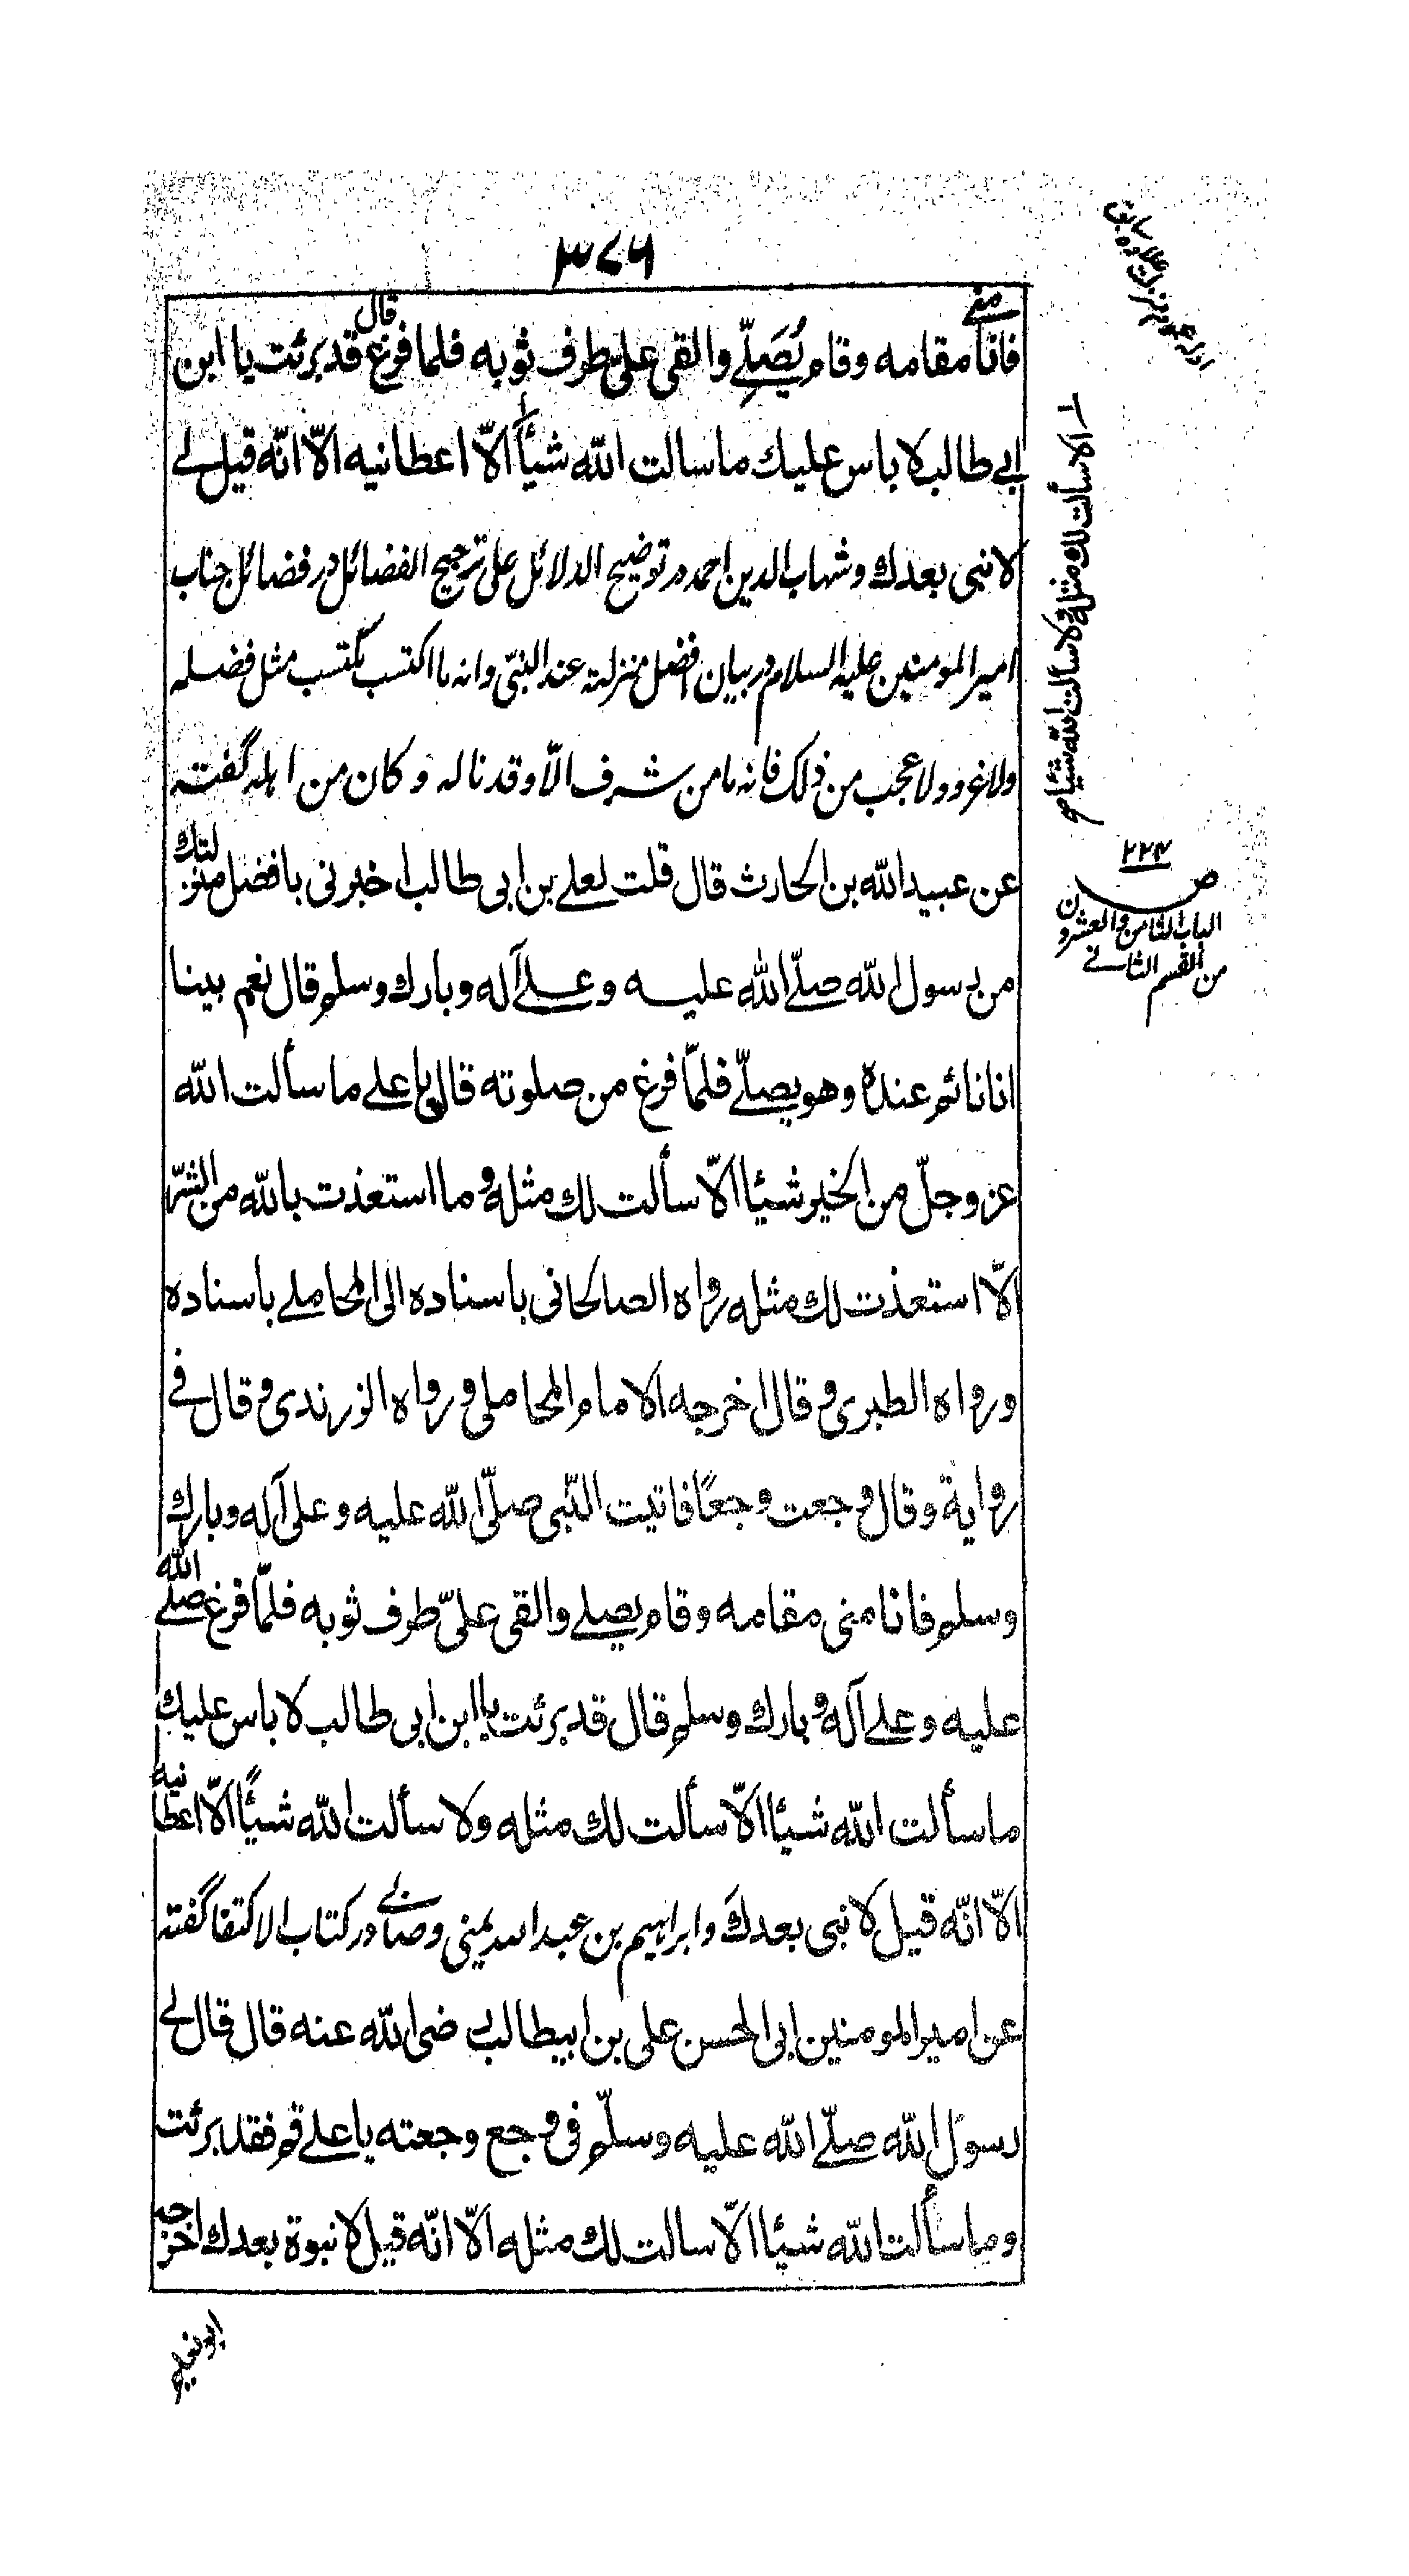 ٣٧٦
فانامنى مقامه وقام يُصَلّے والقى علىّ طرف ثوبه فلما فرغ قال قد برئت يا ابن
ابي طالب لا باس عليك ما سالت الله شيأً الّا اعطانيه الّا انّه قيل لے
لا نبى بعدك وشهاب الدين احمد در توضيح الدلائل على ترجيح الفضائل در فضائل جناب
امير المومنين عليه السلام در بيان افضل منزلته عند النبىّ وانه ما اكتسب مكتسب مثل فضله
ولا غرو ولا عجب من ذلك فانه ما من شرف الّا وقد ناله وكان من اهله گفته
عن عبيد الله بن الحارث قال قلت لعلے بن ابى طالب اخبرنى بافضل منزلتك
من رسول الله صلّے الله عليه وعلے آله وبارك وسلم قال نعم بينا
انا نائم عنده وهو يصلّے فلمّا فرغ من صلوته قال يا علے ما سألت الله
عز وجلّ من الخير شيئا الّا سألت لك مثله وما استعذت بالله من الشرّ
الّا استعذت لك مثله رواه الصالحانى باسناده الى المحاملے باسناده
ورواه الطبرى وقال اخرجه الامام المحاملى ورواه الزرندى وقال فے
رواية وقال وجعت وجعًا فاتيت النّبى صلّى الله عليه وعلى آله وبارك
وسلم فانامنى مقامه وقام يصلے والقى علىّ طرف ثوبه فلمّا فرغ صلے الله
عليه وعلے آله وبارك وسلم قال قد برئت يا ابن ابى طالب لا باس عليك
ما سألت الله شيئا الّا سألت لك مثله ولا سألت الله شيئًا الّا اعطانيه
الّا انّه قيل لا نبى بعدك وابراهيم بن عبد الله يمنى وصابے در كتاب الاكتفا گفته
عن امير المومنين ابى الحسن على بن ابيطالب رضى الله عنه قال قال لے
رسول الله صلّے الله عليه وسلّم فى وجع وجعته يا علے قم فقد برئت
وما سألت الله شيئا الّا سالت لك مثله الّا انّه قيل لا نبوة بعدك اخرجه
ابو نعيم
الا سألت لك مثله ولا سالت الله شيئا صح
٢٢٤
ص
الباب الثامن والعشرون
من القسم الثانے